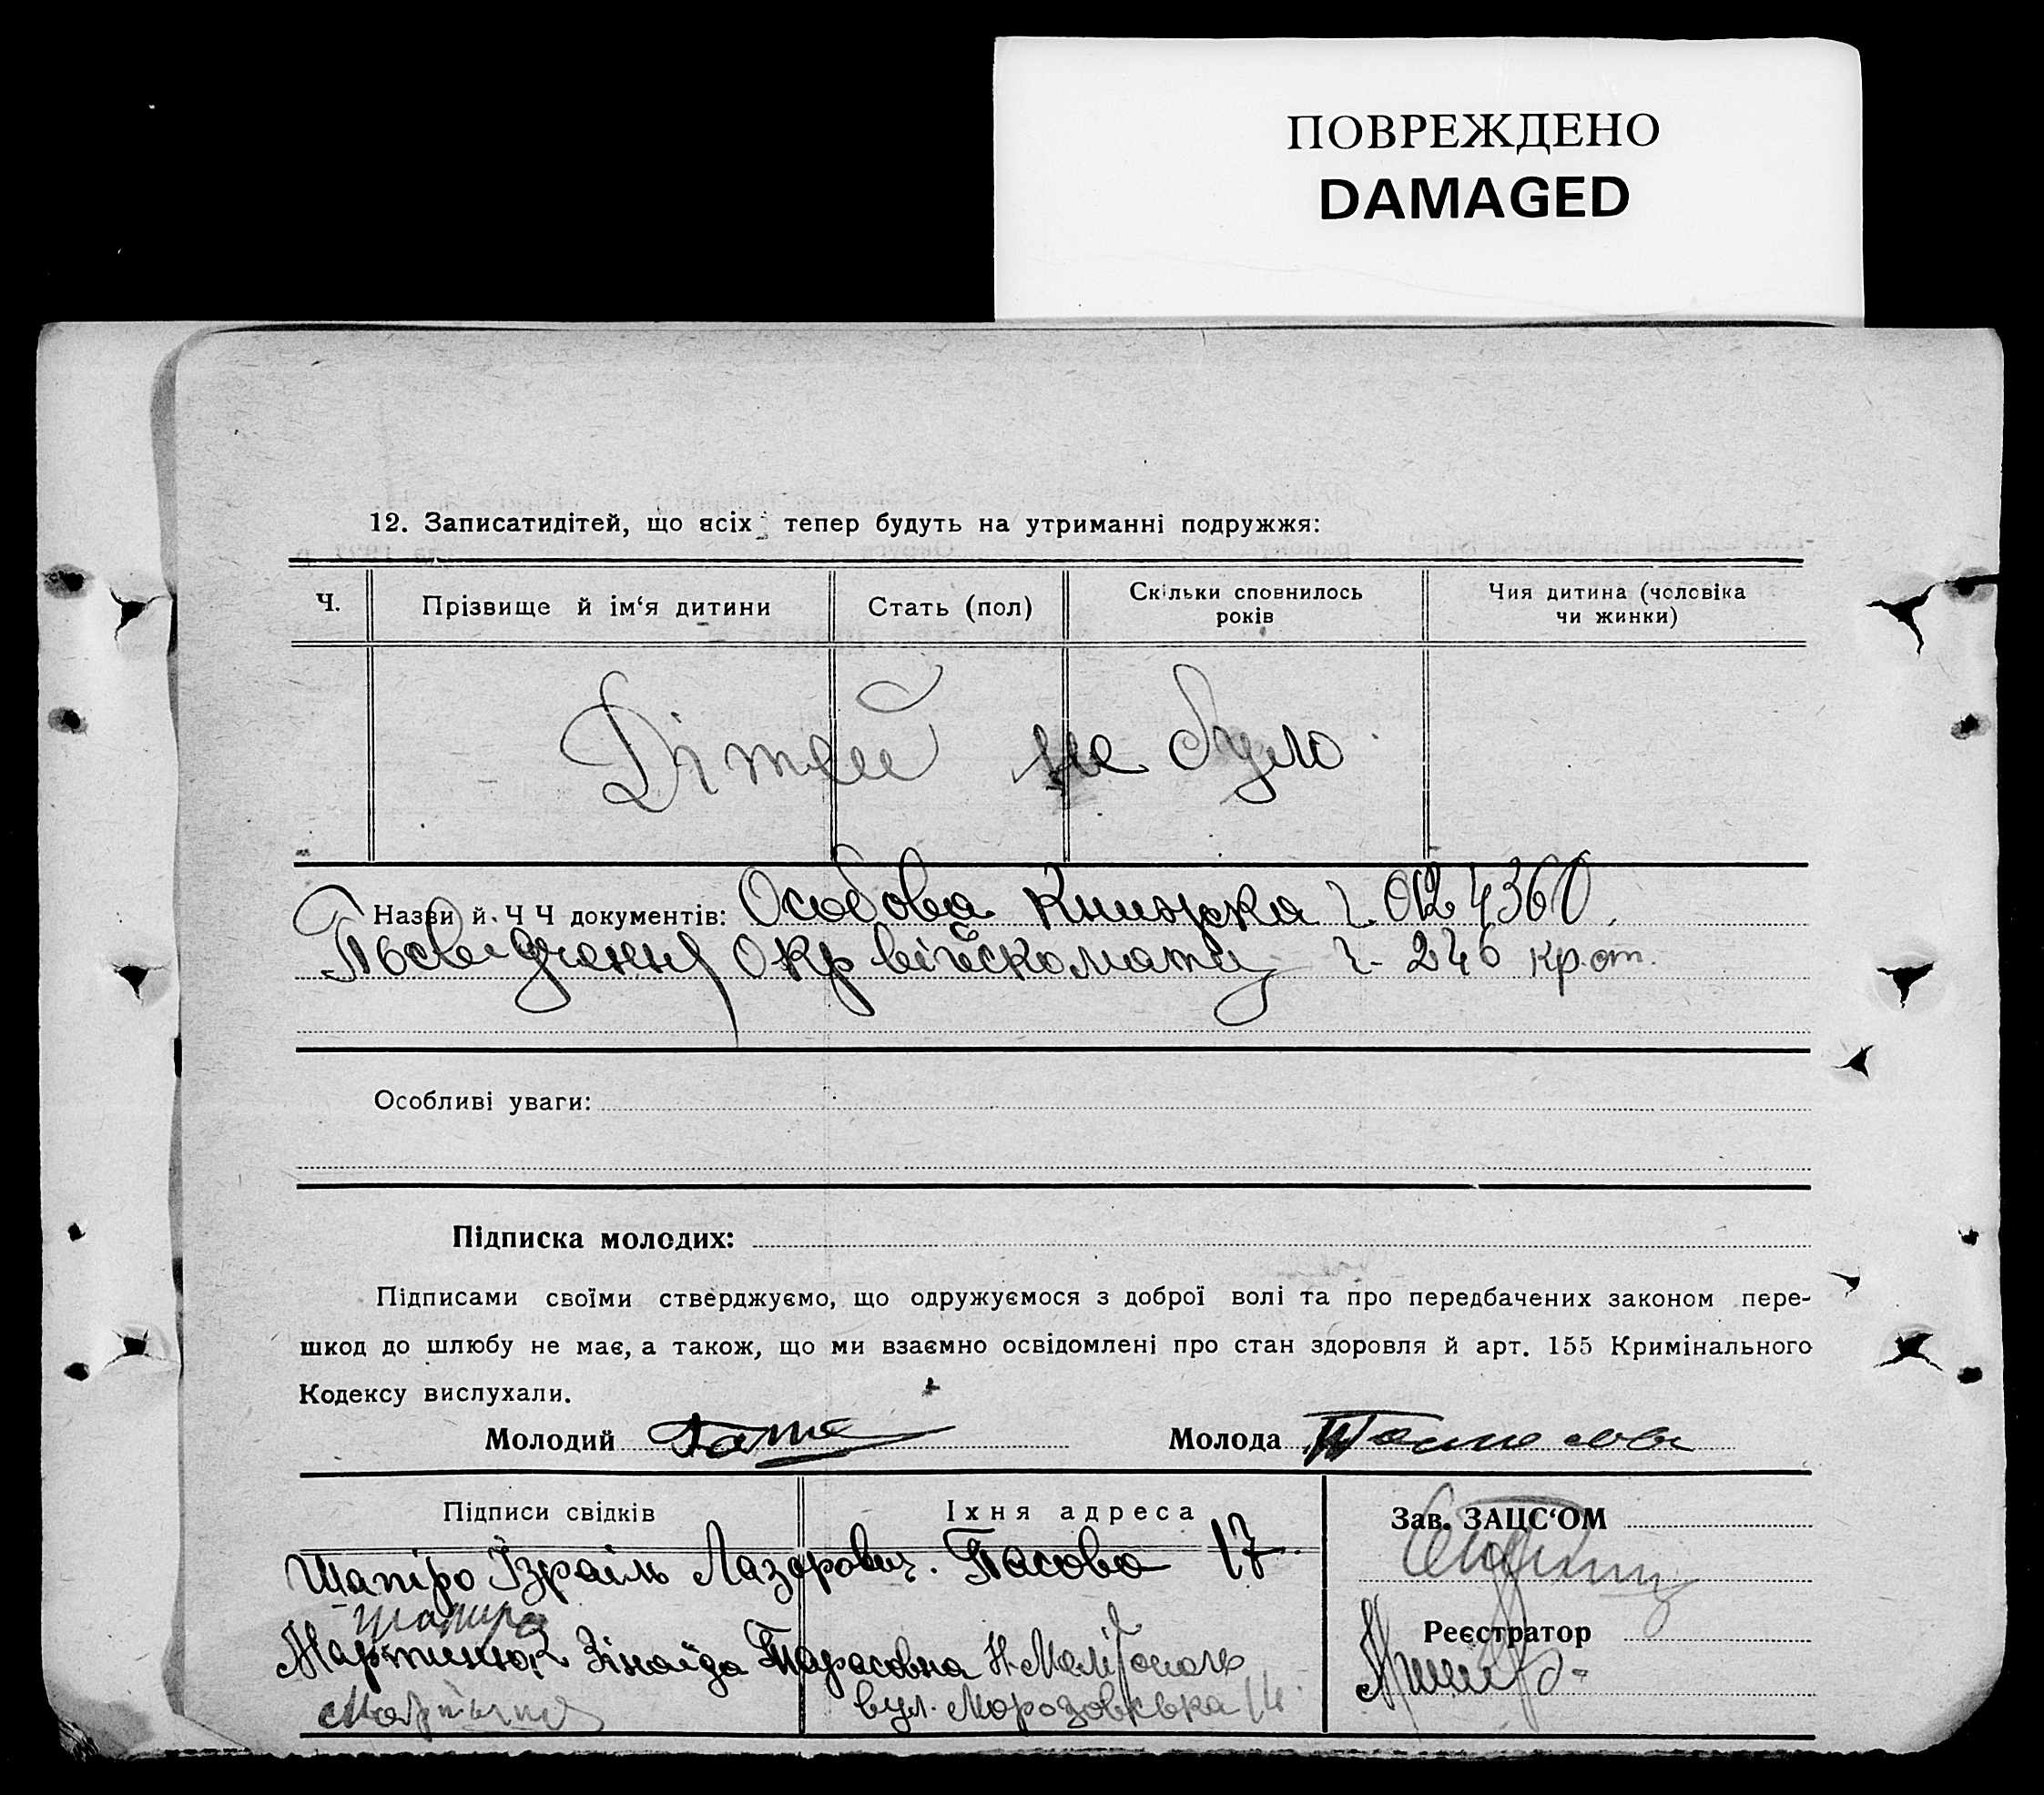 ПОВРЕЖДЕНО
DAMAGED
12. Записатидітей, що всіх тепер будуть на утриманні подружжя:
Ч. Прізвище й ім‘я дитини Стать (пол) Скільки сповнилось років Чия дитина (чоловіка чи жинки)
Дітей не було
Назви й Ч Ч документів: Особова Книжка ч. 024360
Посвідчення Окрвійскомату ч. 246
Особливі уваги:
Підписка молодих:
Підписами своїми стверджуємо, що одружуємося з доброї волі та про передбачених законом пере-
шкод до шлюбу не має, а також, що ми взаємно освідомлені про стан здоровля й арт. 155 Кримінального
Кодексу вислухали.
Молодий Молода
Підписи свідків Їхня адреса Зав. ЗАЦС‘ОМ
Шапіро Ізраіль Лазарович. 17
Шапиро
Реєстратор
Мартинюк Зінаїда Тарасовна Н-Меліто­поль
вул. Морозовська 14